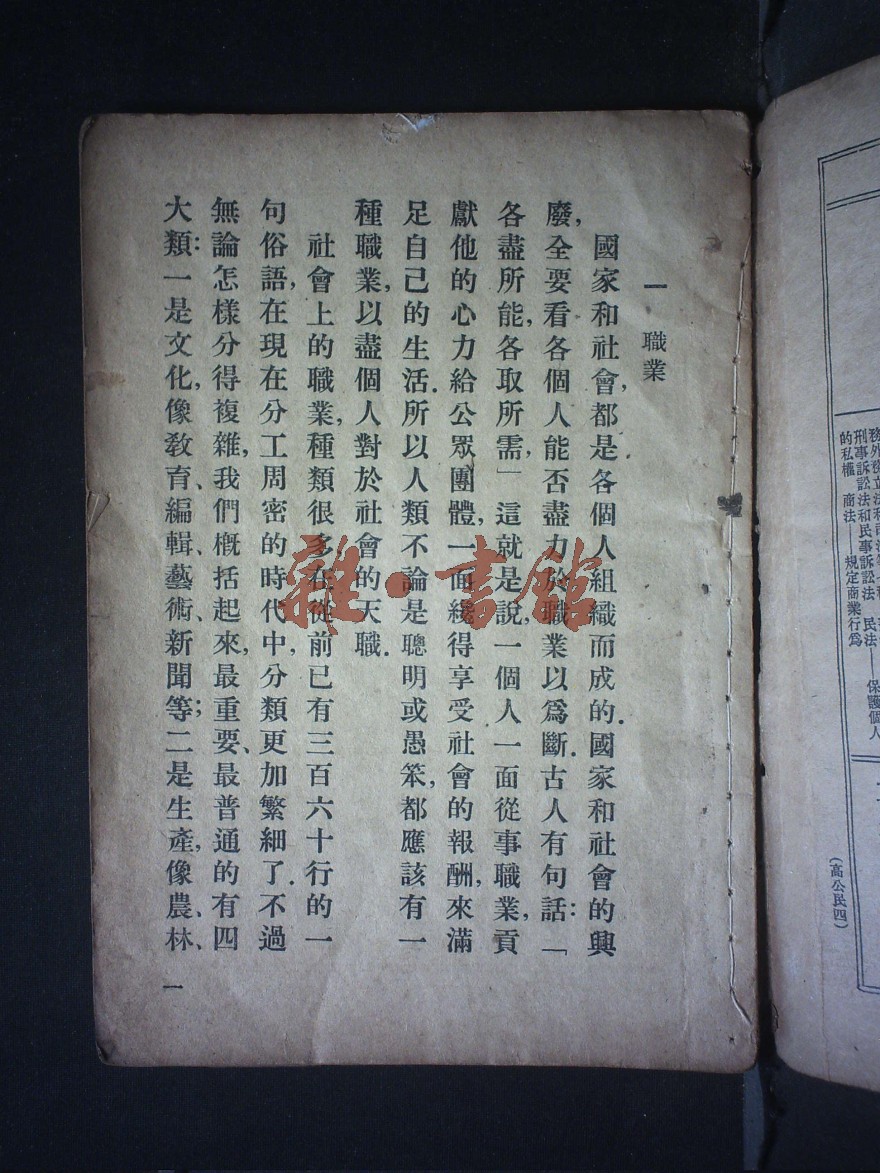 務外務立法和司法等
刑事訴訟法和民事訴訟法 民法—— 保護個人
的私權 商法——規定商業行爲
(高公民四)
一 職業
國家和社會,都是各個人組織而成的.國家和社會的興
廢,全要看各個人能否盡力於職業以爲斷.古人有句話:「
各盡所能,各取所需」這就是說,一個人一面從事職業,貢
獻他的心力給公眾團體,一面纔得享受社會的報酬,來滿
足自己的生活.所以人類不論是聰明或愚笨,都應該有一
種職業,以盡個人對於社會的天職.
社會上的職業,種類很多,在從前已有三百六十行的一
句俗語,在現在分工周密的時代中,分類更加繁細了.不過
無論怎樣分得複雜,我們概括起來,最重要、最普通的有四
大類:一是文化,像敎育、編輯、藝術、新聞等;二是生產,像農、林、
一
雜·書館